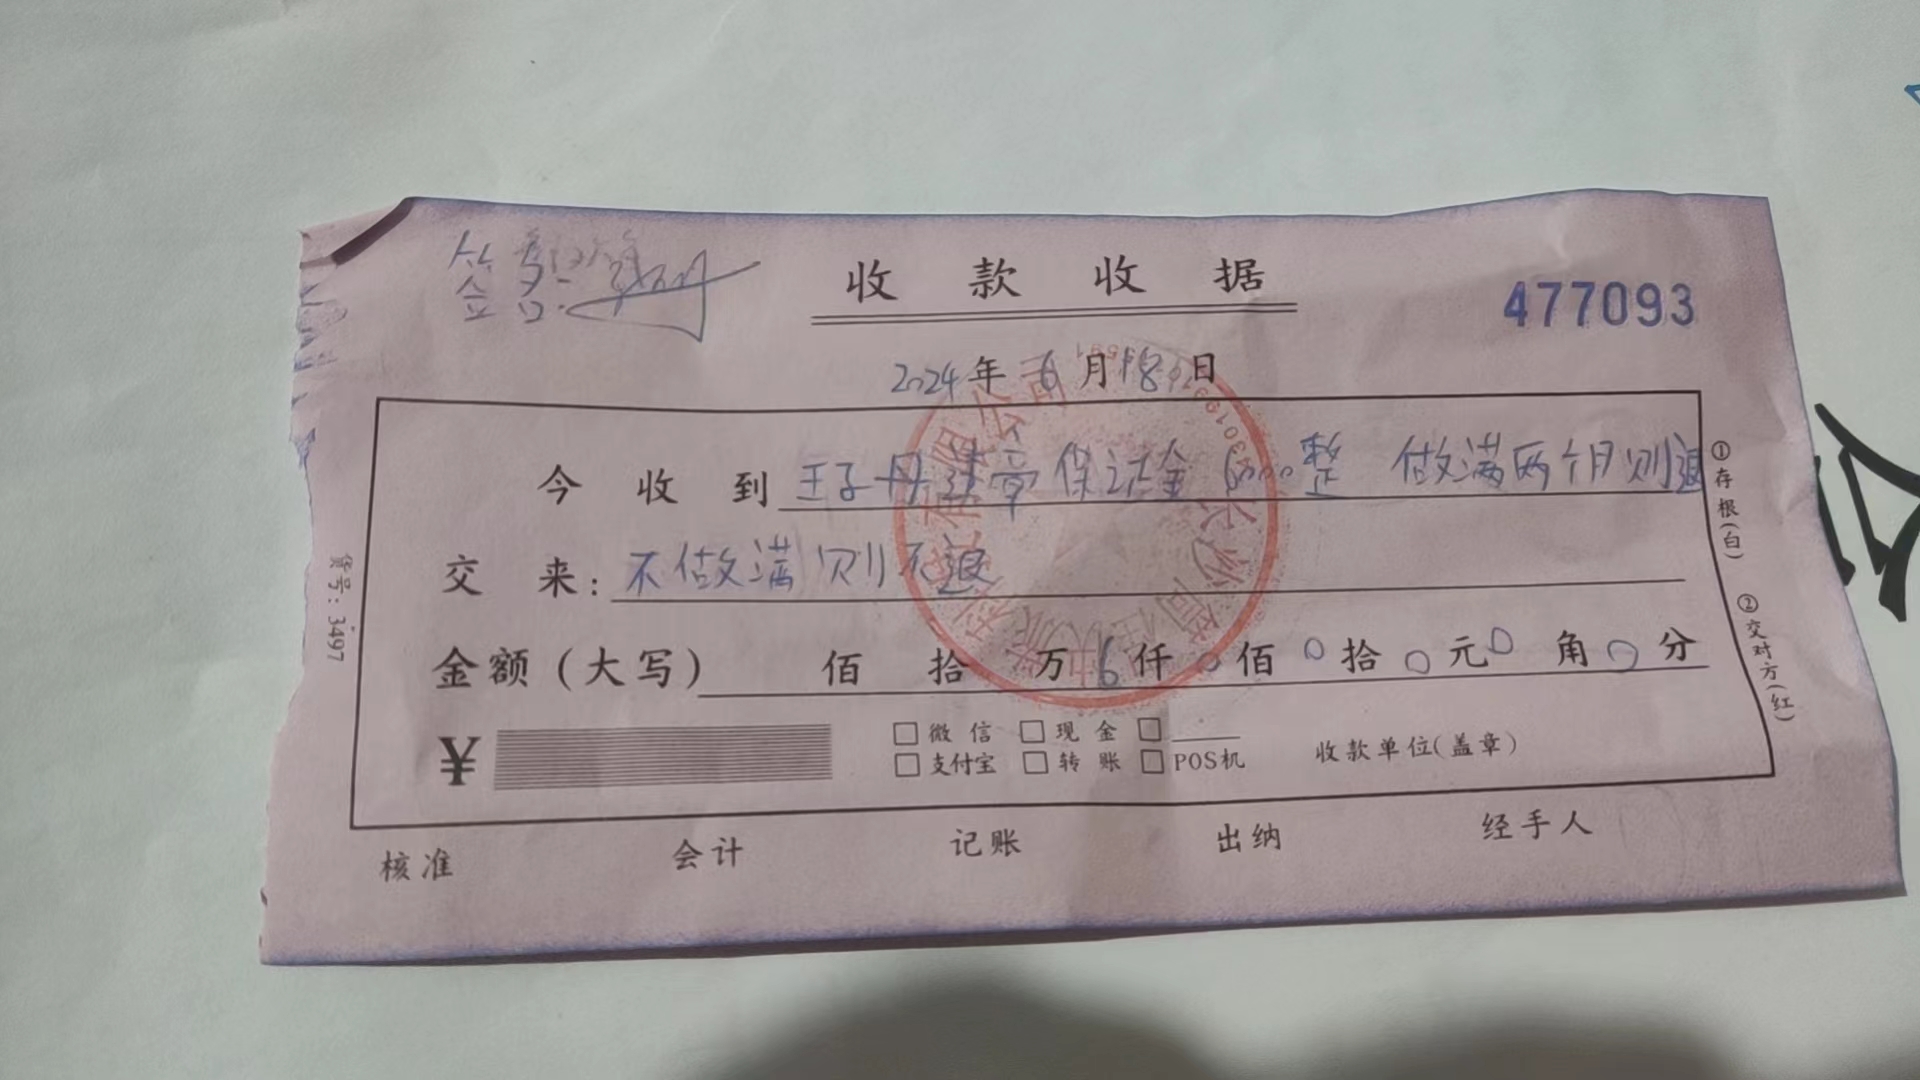 签名:
收款收据
477093
2024年6月18日
今收到王子丹违章保证金6000整 做满两个月则退
交来:不做满则不退
金额(大写) 佰 拾 万6仟0佰0拾0元0角0分
¥ □微信 □现金 □
□支付宝 □转账 □POS机 收款单位(盖章)
核准 会计 记账 出纳 经手人
货号:3497
①存根(白) ②交对方(红)